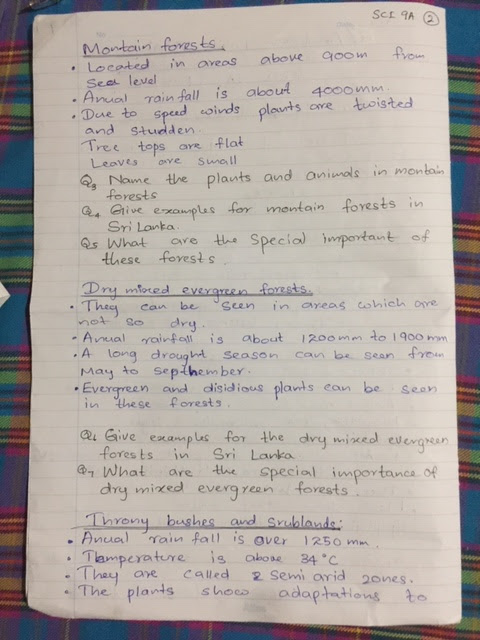 SCI 9A 2
Montain forests.
• Located in areas above 900m from
Sea level
• Anual rain fall is about 4000mm.
• Due to speed winds plants are twisted
and studden.
Tree tops are flat
Leaves are small
Q3 Name the plants and animals in montain
forests
Q4 Give examples for montain forests in
Sri Lanka.
Q5 What are the special important of
these forests.
Dry mixed evergreen forests.
• They can be seen in areas which are
not so dry.
• Anual rainfall is about 1200mm to 1900mm
• A long drought season can be seen from
May to septhember.
• Evergreen and disidious plants can be seen
in these forests.
Q6 Give examples for the dry mixed evergreen
forests in Sri Lanka
Q7 What are the special importance of
dry mixed evergreen forests.
Throny bushes and srublands:
• Anual rain fall is over 1250mm.
• Temperature is above 34°C
• They are called semi arid zones.
• The plants show adaptations to